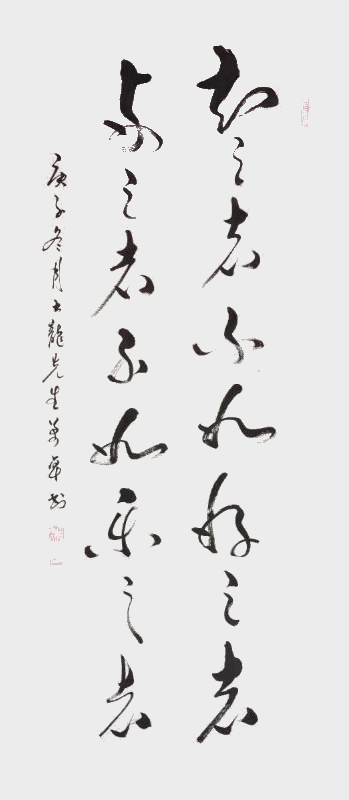 知之者不如好之者
好之者不如乐之者
庚子冬月大龍先生